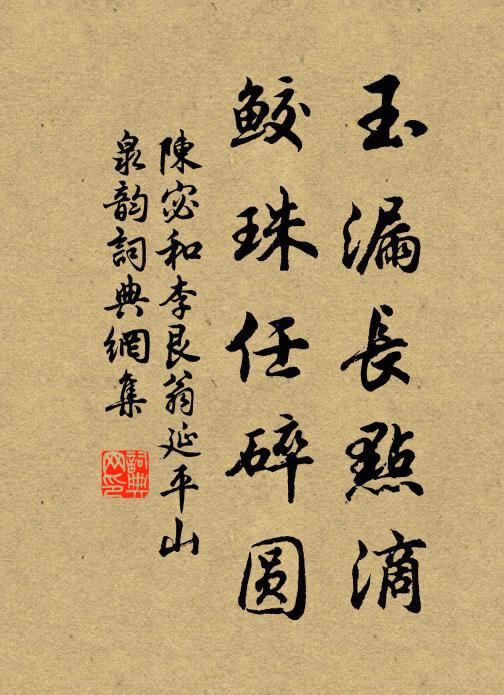 玉漏長點滴
鮫珠任碎圆
陳宓和李艮翁延平山
泉韵詞典網集
詞典
网印